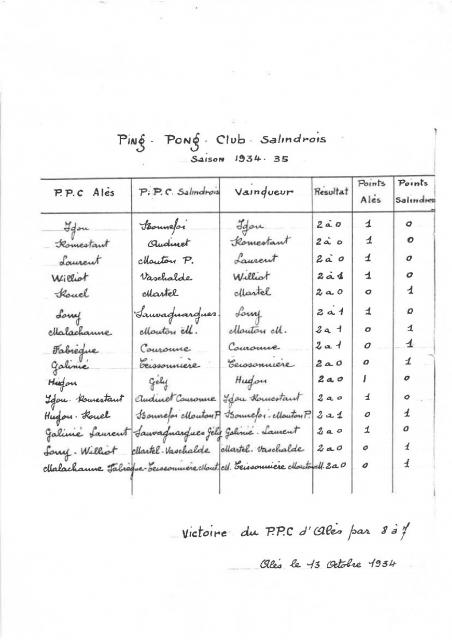 Ping - Pong - Club - Salindrois
Saison 1934 - 35
P.P.C Alès P.P.C. Salindrois Vainqueur Résultat Points Alès Points Salindres
Igou Bonnefoi Igou 2 à 0 1 0
Romestant Audinet Romestant 2 à 0 1 0
Laurent Mouton P. Laurent 2 à 0 1 0
Williot Vaschalde Williot 2 à 1 1 0
Rouel Martel Martel 2 a 0 0 1
Sauvaguargues 2 à 1 1 0
Malachanne Mouton M. Mouton M. 2 a 1 0 1
Fabrègue Couronne Couronne 2 a 1 0 1
Galinié Teissonnière Teissonnière 2 a 0 0 1
Hugon Gély Hugon 2 a 0 1 0
Igou - Romestant Audinet Couronne Igou Romestant 2 a 0 1 0
Hugon - Rouel Bonnefoi - Mouton P Bonnefoi - Mouton P. 2 a 1 0 1
Galinié Laurent Sauvaguargues Gély Galinié - Laurent 2 a 0 1 0
Williot Martel - Vaschalde Martel - Vaschalde 2 a 0 0 1
Malachanne Fabrègue - Teissonnière Mout M. Teissonnière Mouton M. 2 a 0 0 1
Victoire du P.P.C d'Alès par 8 à 7
Alès le 13 Octobre 1934